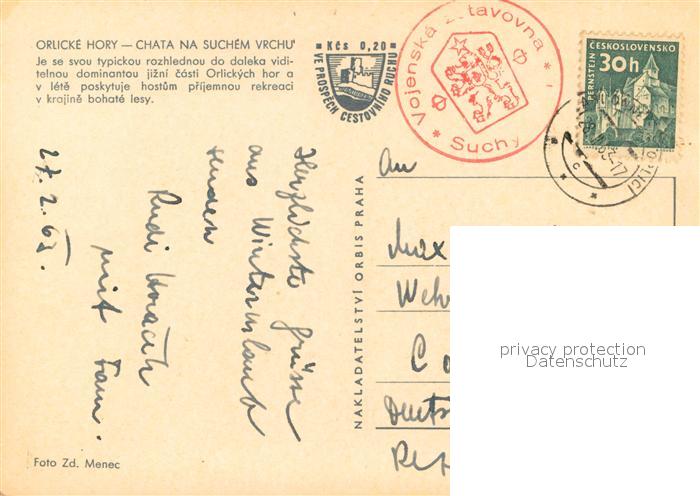 ORLICKÉ HORY — CHATA NA SUCHÉM VRCHU
Je se svou typickou rozhlednou do daleka vidi-
telnou dominantou jižní části Orlických hor a
v létě poskytuje hostům příjemnou rekreaci
v krajině bohaté lesy.
Kčs 0,20
VE PROSPĚCH CESTOVNÍHO RUCHU
* Vojenská zotavovna *
Suchý
ČESKOSLOVENSKO
PERNŠTEJN
30h
Herzlichste Grüsse
aus Winterurlaub
senden
Rudi
mit Fam.
27. 2. 63.
NAKLADATELSTVÍ ORBIS PRAHA
An
Max
Weh
Deuts
privacy protection
Datenschutz
Foto Zd. Menec